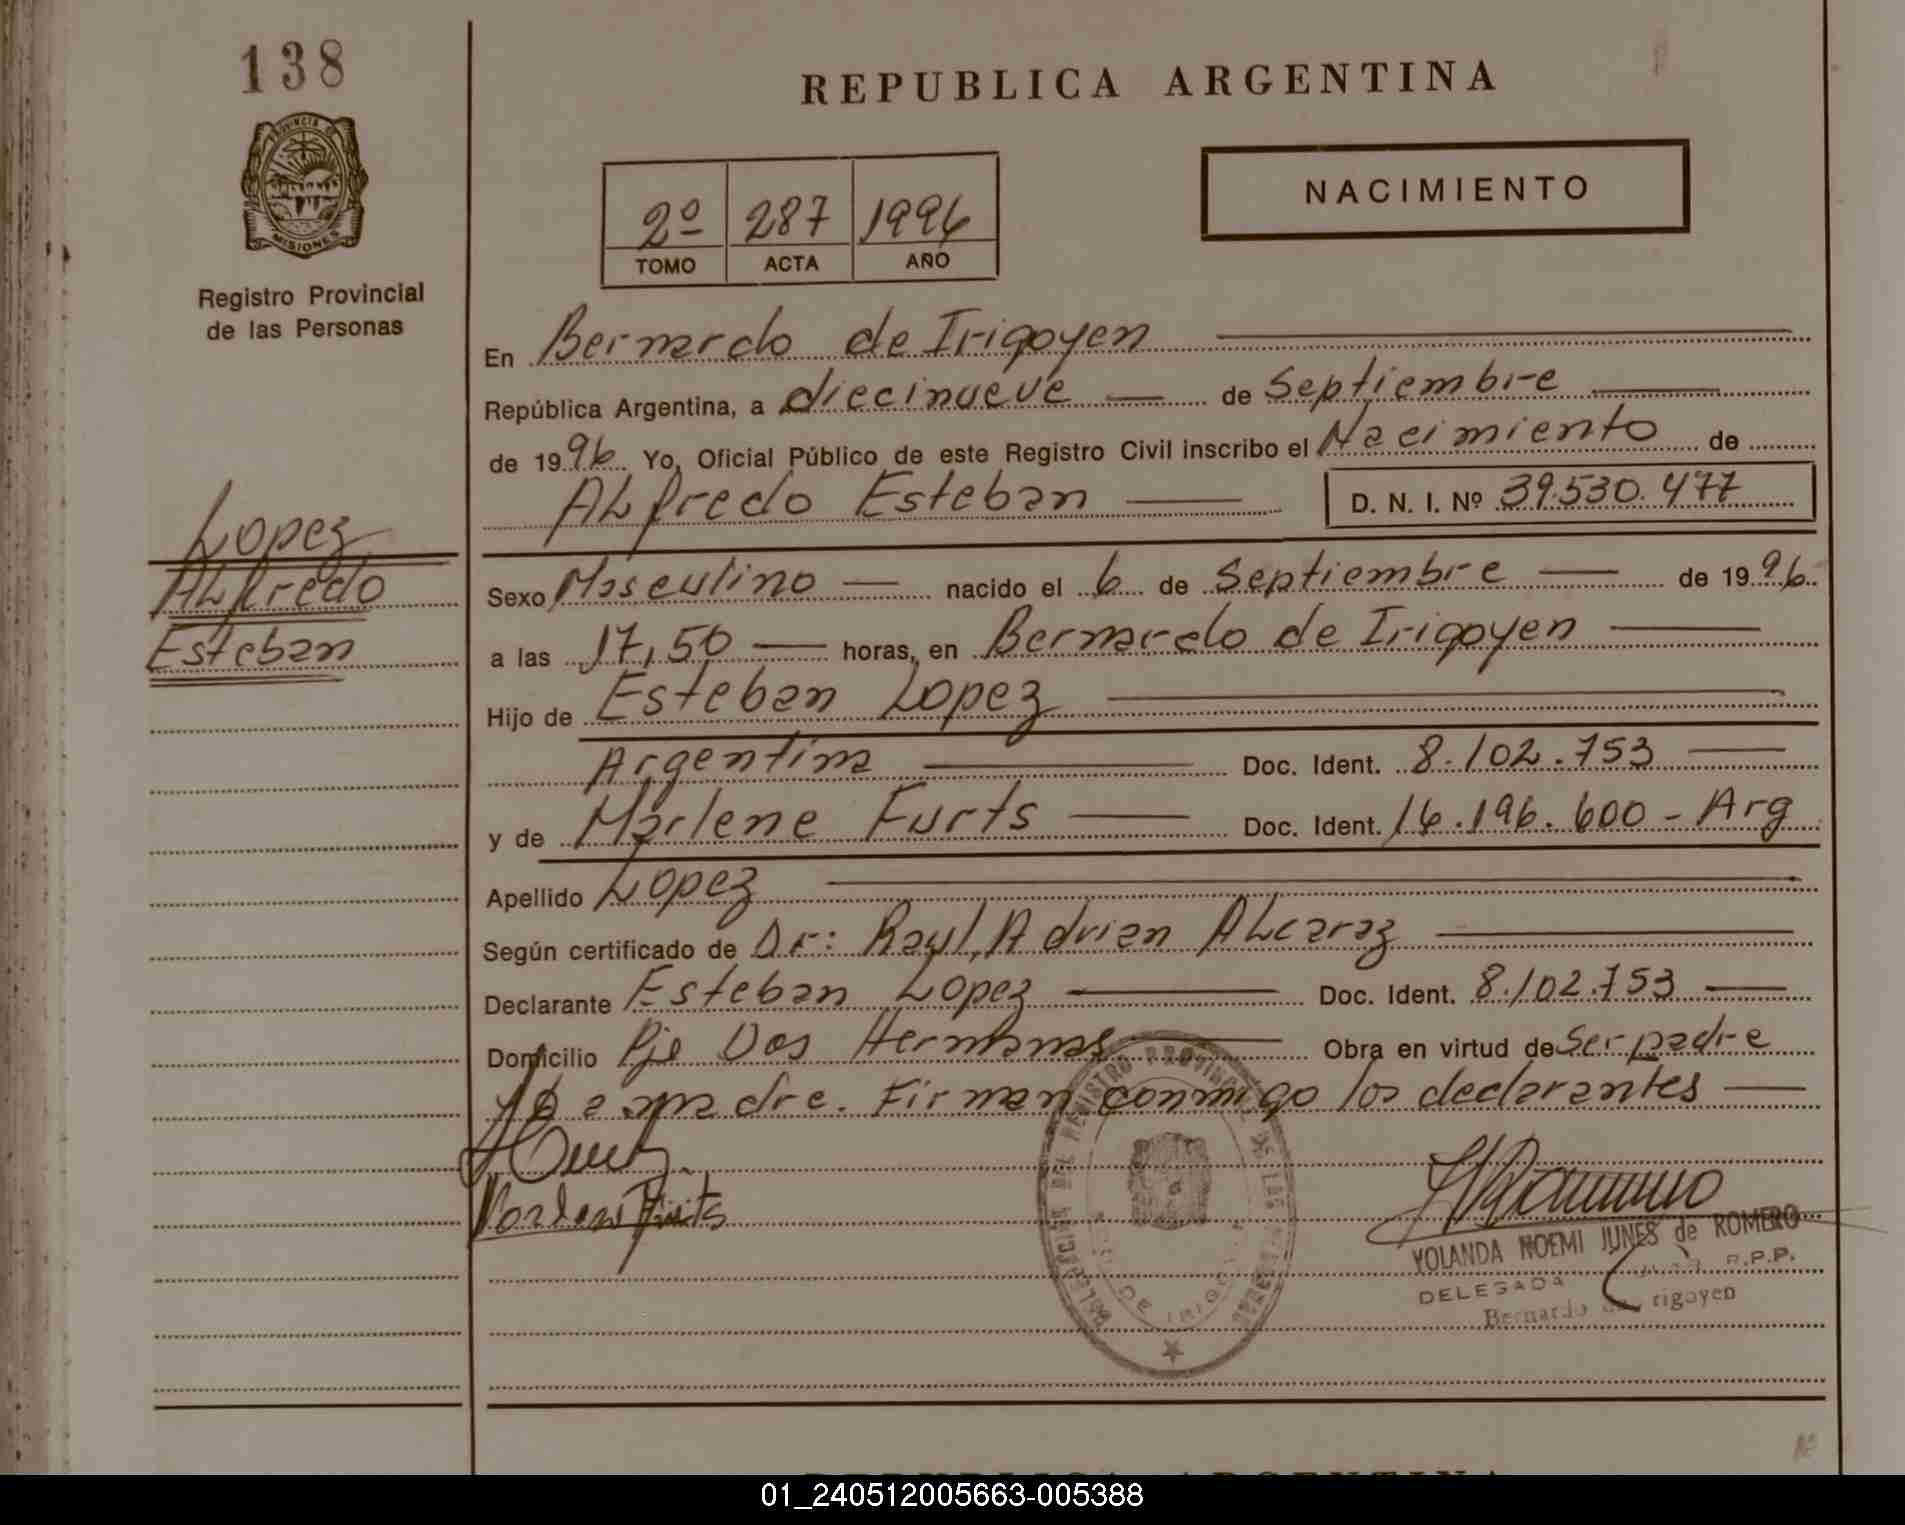 138
PROVINCIA DE
MISIONES
Registro Provincial
de las Personas
Lopez
ALfredo
Esteban
REPUBLICA ARGENTINA
NACIMIENTO
2º 287 1996
TOMO ACTA AÑO
En Bernardo de Irigoyen
República Argentina, a diecinueve de Septiembre
de 1996 Yo, Oficial Público de este Registro Civil inscribo el Nacimiento de
ALfredo Esteban D. N. I. Nº 39.530.477
Sexo Masculino nacido el 6 de Septiembre de 1996
a las 17,50 horas, en Bernardo de Irigoyen
Hijo de Esteban Lopez
Argentina Doc. Ident. 8.102.753
y de Marlene Furts Doc. Ident. 16.196.600 - Arg
Apellido Lopez
Según certificado de Dr: Raul Adrian ALcaraz
Declarante Esteban Lopez Doc. Ident. 8.102.753
Domicilio Pje Dos Hermanas Obra en virtud de Ser padre
madre. Firman conmigo los declarantes
YOLANDA NOEMI JUNES de ROMERO
DELEGADA R.P.P.
Bernardo de Irigoyen
DELEGACION DEL REGISTRO PROVINCIAL DE LAS PERSONAS
DE IRIGOYEN
REPUBLICA ARGENTINA
01_240512005663-005388